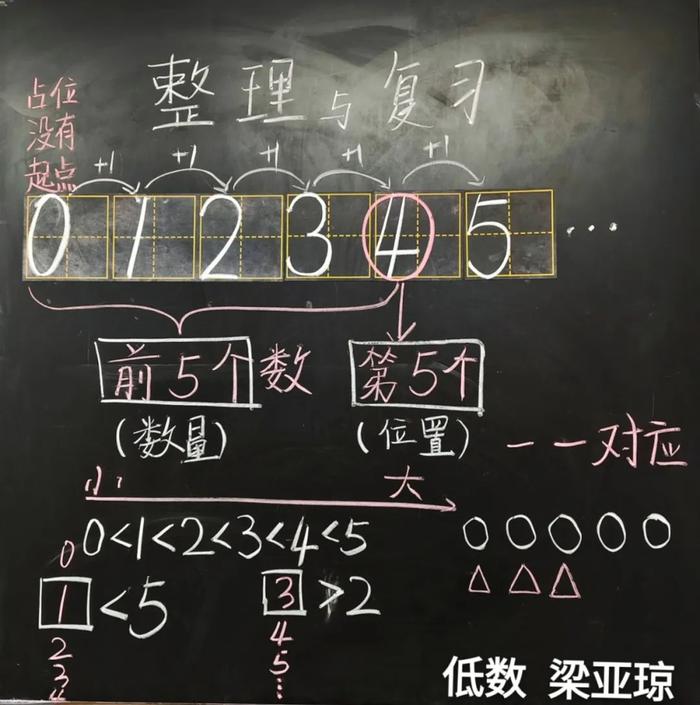 整理与复习
占位
没有
起点
+1 +1 +1 +1 +1
0 1 2 3 4 5 ...
前5个数 第5个
(数量) (位置)
一一对应
小 大
0<1<2<3<4<5
0
1<5 3>2
2 4
3 5
4 ⋮
低数 梁亚琼